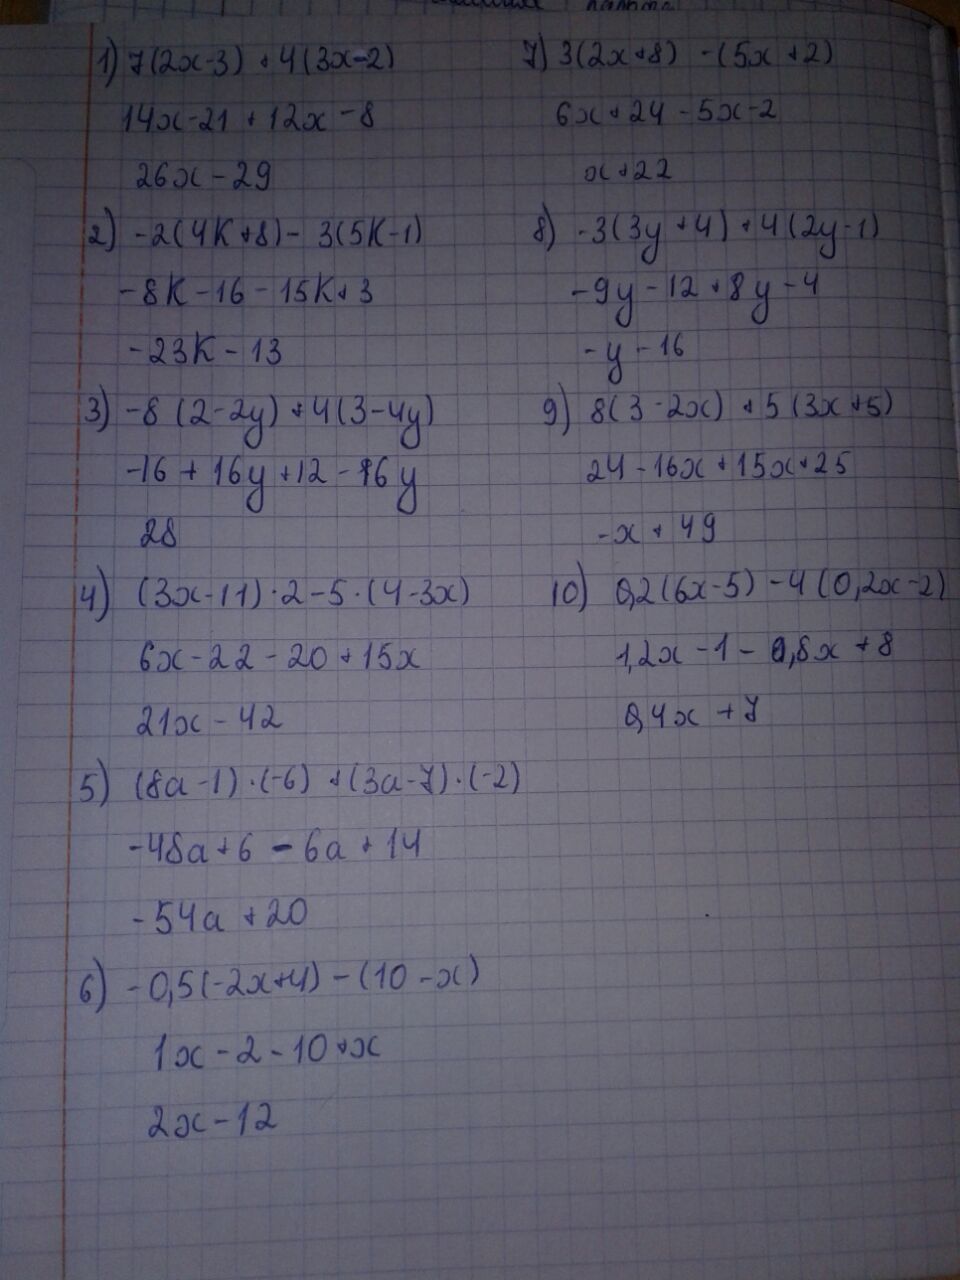 1) 7(2x-3) + 4(3x-2)
14x-21 + 12x - 8
26x - 29
2) -2(4K+8) - 3(5K-1)
-8K - 16 - 15K + 3
-23K - 13
3) -8 (2-2y) + 4(3-4y)
-16 + 16y + 12 - 16y
28
4) (3x-11)·2-5·(4-3x)
6x-22-20+15x
21x - 42
5) (8a-1)·(-6) + (3a-7)·(-2)
-48a+6 - 6a + 14
-54a + 20
6) -0,5(-2x+4) - (10-x)
1x - 2 - 10 + x
2x - 12
7) 3(2x+8) - (5x+2)
6x + 24 - 5x - 2
x + 22
8) -3(3y+4) + 4(2y-1)
-9y - 12 + 8y - 4
-y - 16
9) 8(3-2x) + 5(3x+5)
24 - 16x + 15x + 25
-x + 49
10) 0,2(6x-5) - 4(0,2x-2)
1,2x - 1 - 0,8x + 8
0,4x + 7